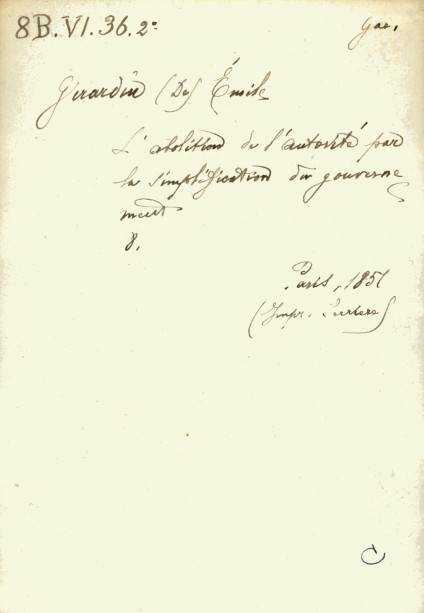 8B.VI.36.2°
Gar.
Girardin (De) Émile
L'abolition de l'autorité par
la simplification du gouverne
ment
8.
Paris, 1851
(Impr.
C